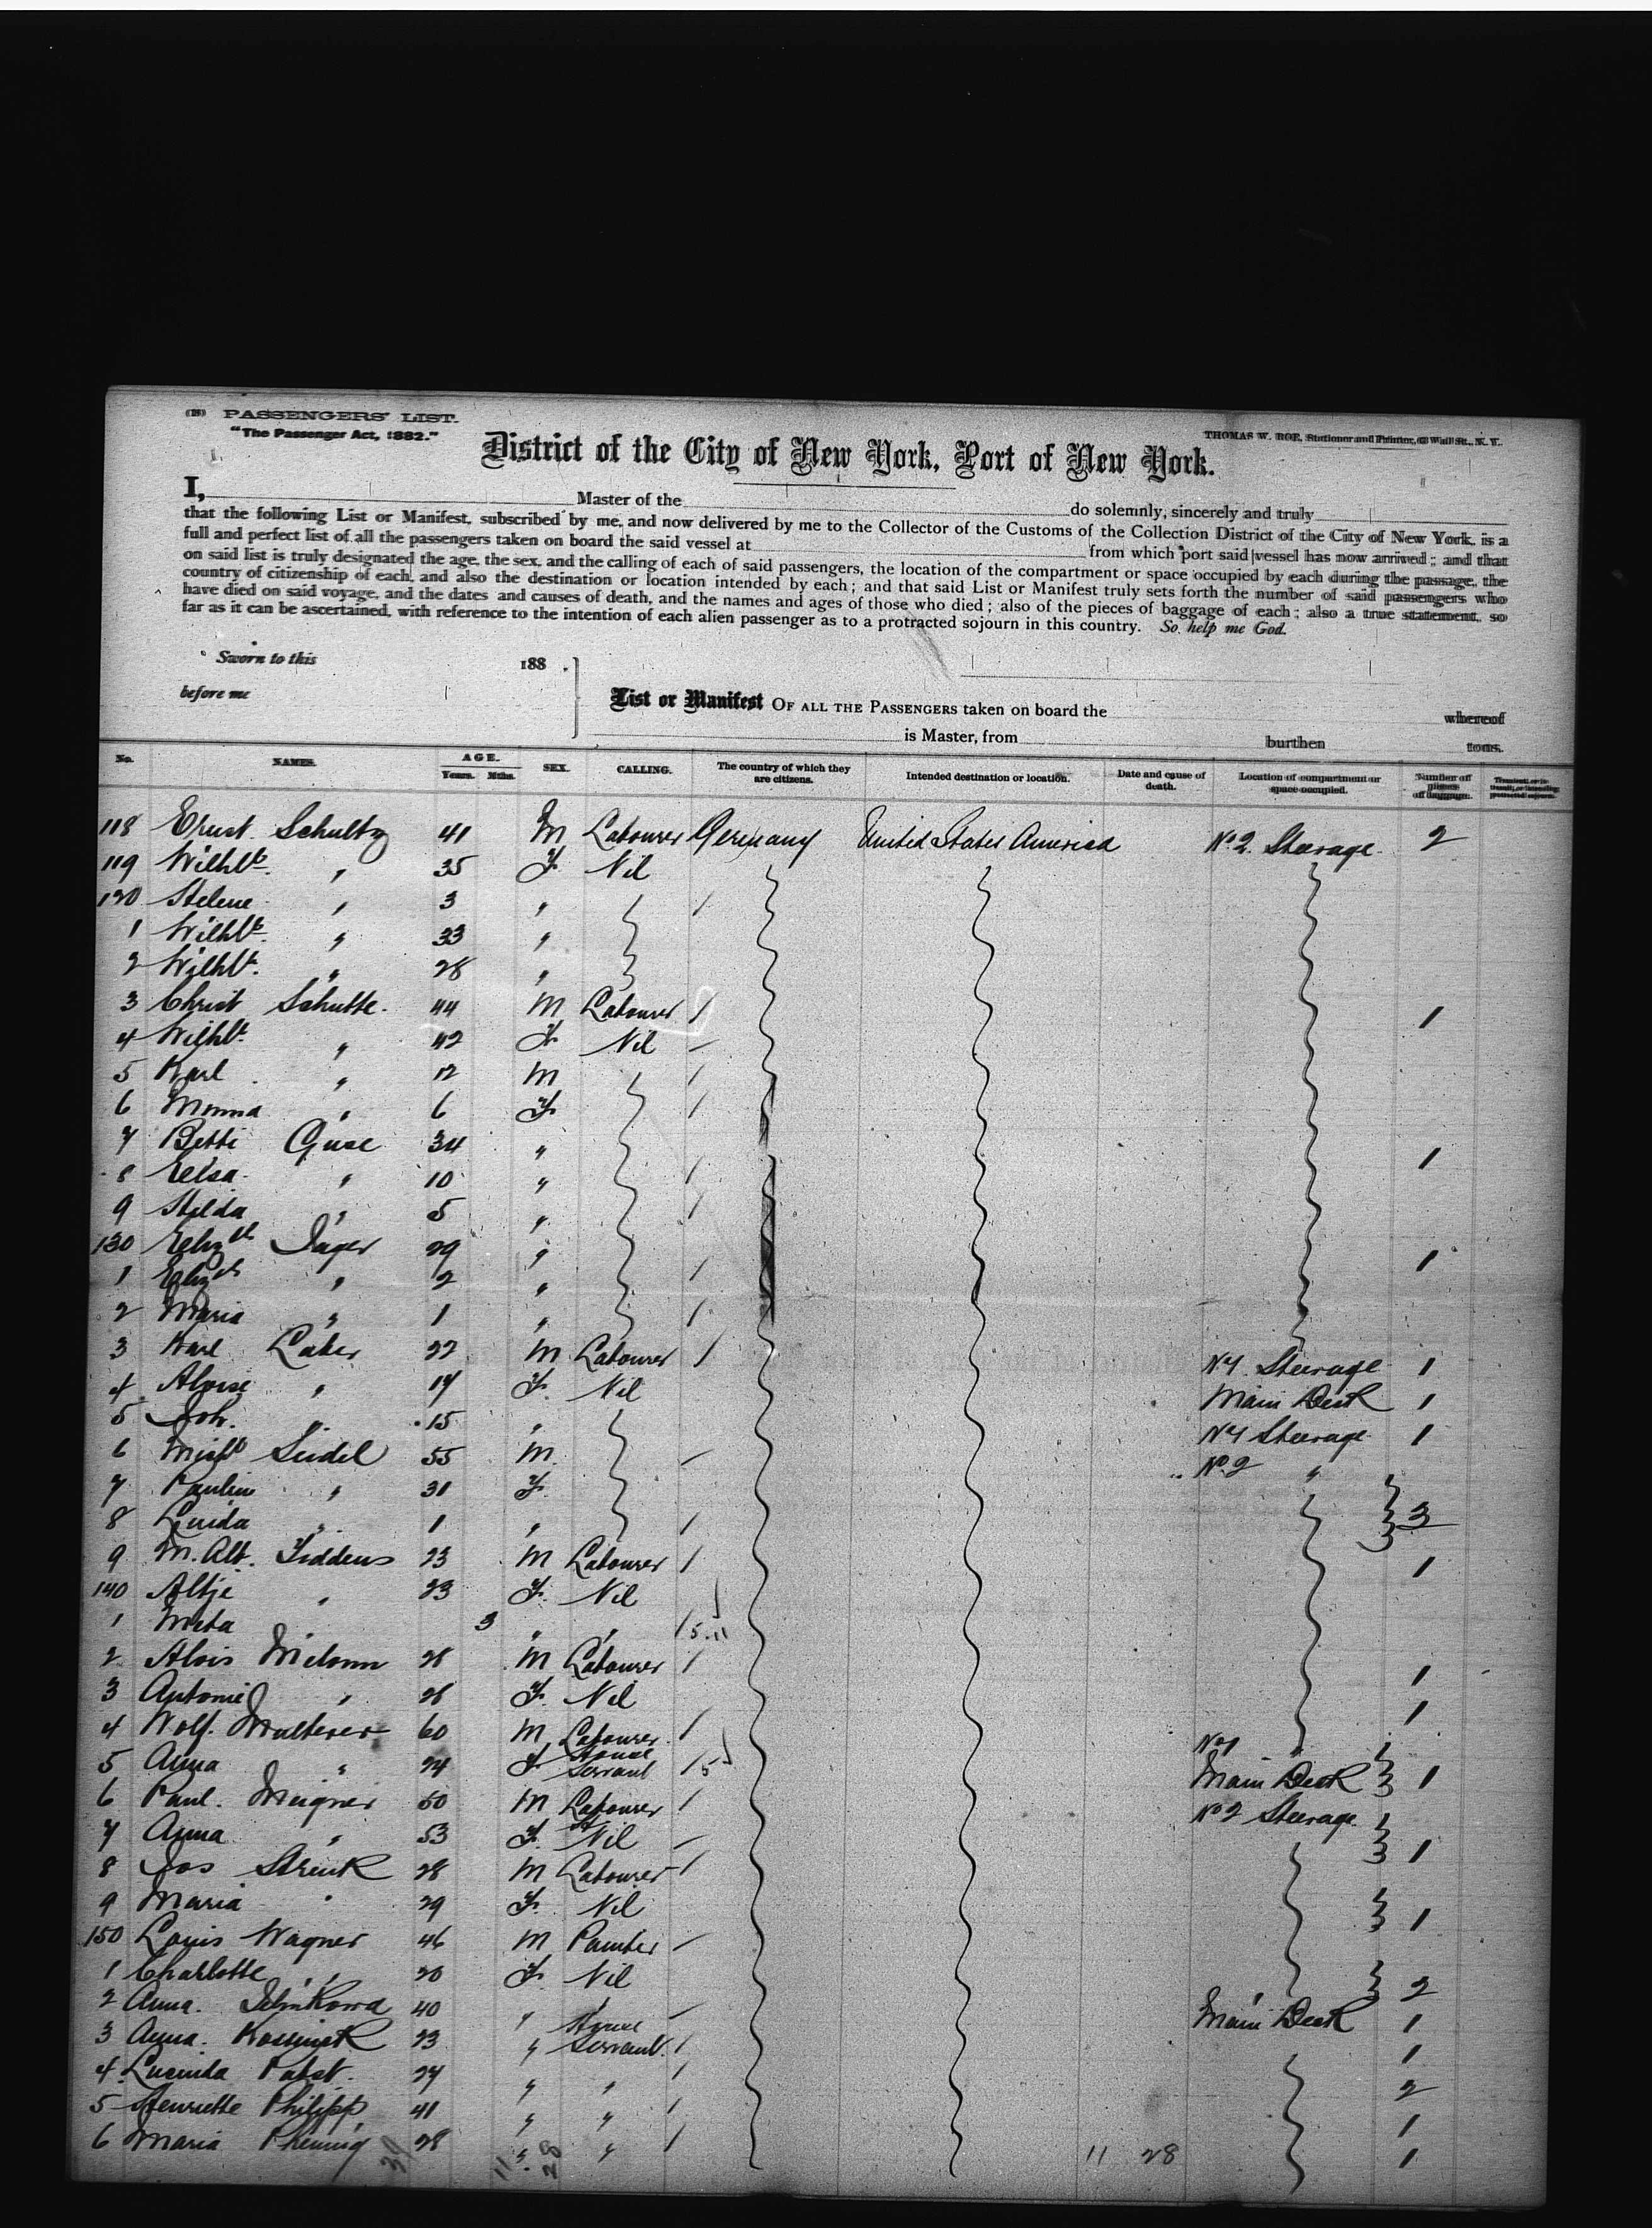 (18) PASSENGERS' LIST.
"The Passenger Act, 1882."
THOMAS W. ROE, Stationer and Printer, 63 Wall St., N. Y.
District of the City of New York, Port of New York.
I, Master of the do solemnly, sincerely and truly
that the following List or Manifest, subscribed by me, and now delivered by me to the Collector of the Customs of the Collection District of the City of New York, is a
full and perfect list of all the passengers taken on board the said vessel at from which port said vessel has now arrived; and that
on said list is truly designated the age, the sex, and the calling of each of said passengers, the location of the compartment or space occupied by each during the passage, the
country of citizenship of each, and also the destination or location intended by each; and that said List or Manifest truly sets forth the number of said passengers who
have died on said voyage, and the dates and causes of death, and the names and ages of those who died; also of the pieces of baggage of each; also a true statement, so
far as it can be ascertained, with reference to the intention of each alien passenger as to a protracted sojourn in this country. So help me God.
Sworn to this 188 .
before me
List or Manifest OF ALL THE PASSENGERS taken on board the whereof
is Master, from burthen tons.
No. NAMES. AGE. Years. Mths. SEX. CALLING. The country of which they are citizens. Intended destination or location. Date and cause of death. Location of compartment or space occupied. Number of pieces of baggage.
118 Ernst Schultz 41 M Labourer Germany United States America No. 2. Steerage 2
119 Wilhte " 35 F Nil
120 Helene " 3 "
1 Wilhte " 33 "
2 Wilht. " 28 "
3 Christ Schutte 44 M Labourer 1
4 Wilht. " 42 F Nil
5 Karl " 12 M
6 Minna " 6 F
7 Betti Guse 34 " 1
8 Elsa " 10 "
9 Hilda " 5 "
130 Elizth Jager 29 " 1
1 Elizth " 2 "
2 Maria " 1 "
3 Karl Laker 22 M Labourer No 1 Steerage 1
4 Aloise " 17 F. Nil Main Deck 1
5 Joh. " 15 " No 1 Steerage 1
6 Seidel 55 M. No. 2 "
7 Pauline " 31 F.
8 " 1 " 3
9 M. Alb. Fiddens 23 M Labourer 1
140 Altje " 23 F. Nil
1 Meta " 3 " " 5.11
2 Alois 28 M Labourer 1
3 Antonie " 28 F. Nil 1
4 Wolf. 60 M Labourer No 1 "
5 Anna " 24 F House Servant 5 Main Deck 1
6 Paul. 50 M Labourer No 2 Steerage
7 Anna " 53 F. Nil 1
8 Jos 28 M Labourer
9 Maria " 29 F. Nil 1
150 Louis Wagner 46 M Painter
1 Charlotte " 20 F. Nil 2
2 Anna. 40 " " Main Deck 1
3 Anna. 23 " House Servant. 1
4 Lucinda Pabst. 27 " " 2
5 Henriette Philipp 41 " " 1
6 Maria 28 " " 1
39 11 28 11 28